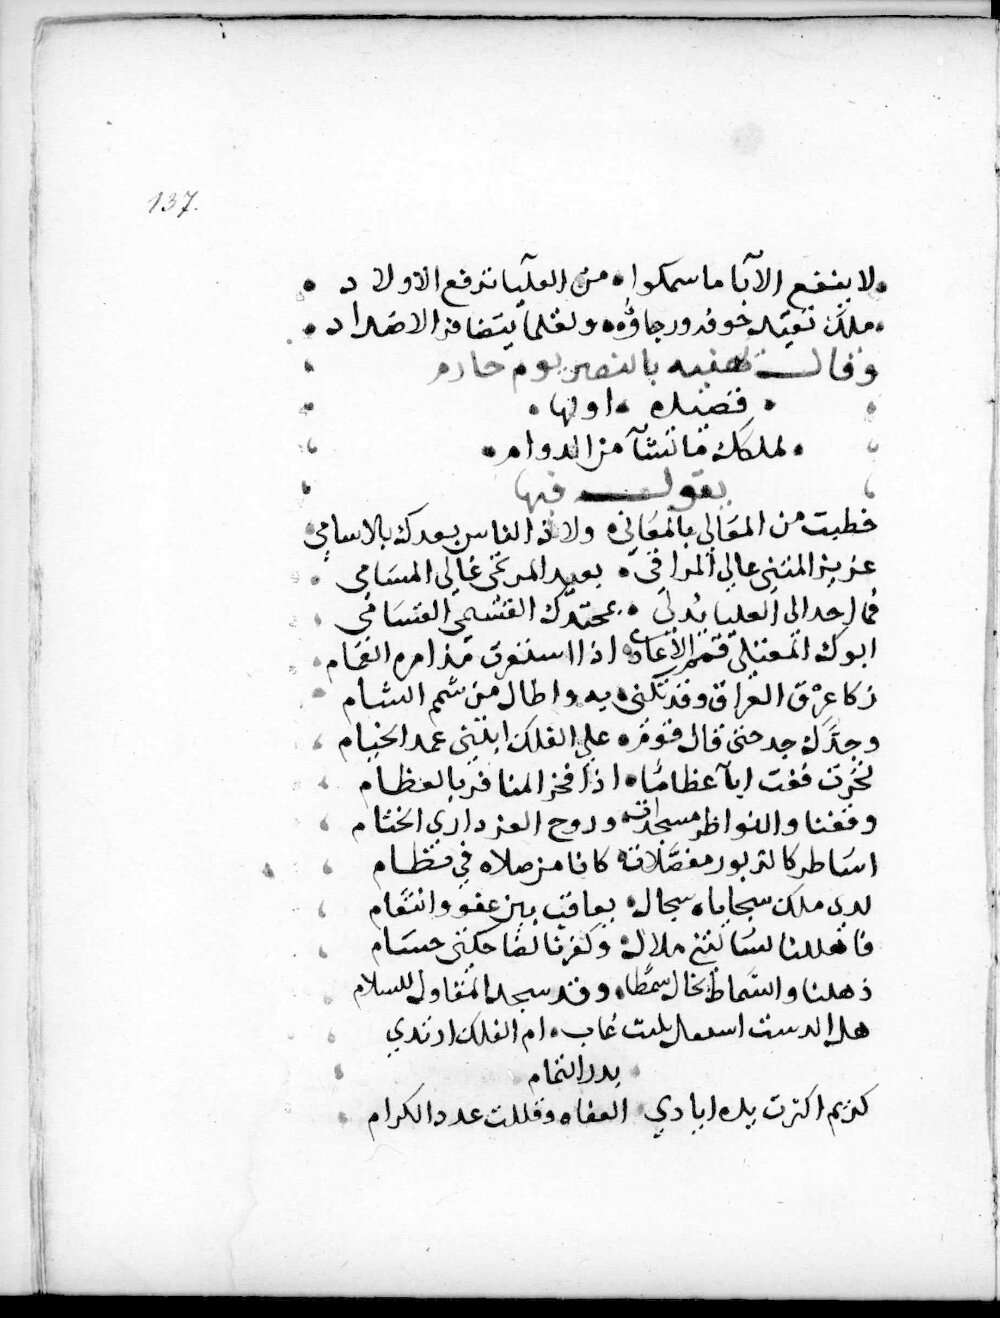 137.
لا ينفع الآبا ما سمكوا من العليا ترفع الاولاد
ملك تقيد خوفه ورجاؤه ولقلما يتضافر الاضداد
وقال يهنيه بالنصر يوم حارم
قصيده اولها
لملكك ما تشآ من الدوام
يقول فيها
خطبت من المعالي بالمعاني ولاذ الناس بعدك بالاسامي
عزيز المنتمي عالي المراقي بعيد المرتمى غالي المسامي
فما احد الى العليا يدلي بمحتدك القسيمي القسامي
ابوك المعتلي قمم الاعادي اذا استغرى
زكا عرق العراق وقد تكنى به واطال من شمم الشام
وجدك جد حتى قال قوم على الفلك ابتنى عمد الخيام
فخرت ففت ابآ عظاميا اذا فخر المنافر بالعظام
وقفنا والنواظر مسجدات وروح العز داري الختام
اساطر كالزبور مفصلات كانا من صلاه في نظام
لدى ملك سجاياه سجال يعاقب بين عفو وانتقام
فاهللنا لسالفتي هلال وكفرنا لضاحكتي حسام
ذهلنا والسماط يخال سمطا وقد سجد المقاول للسلام
هل الدست بليث غاب ام الفلك ارتدي
بدر التمام
كريم اكثرت يده ايادي العفاه وقللت عدد الكرام